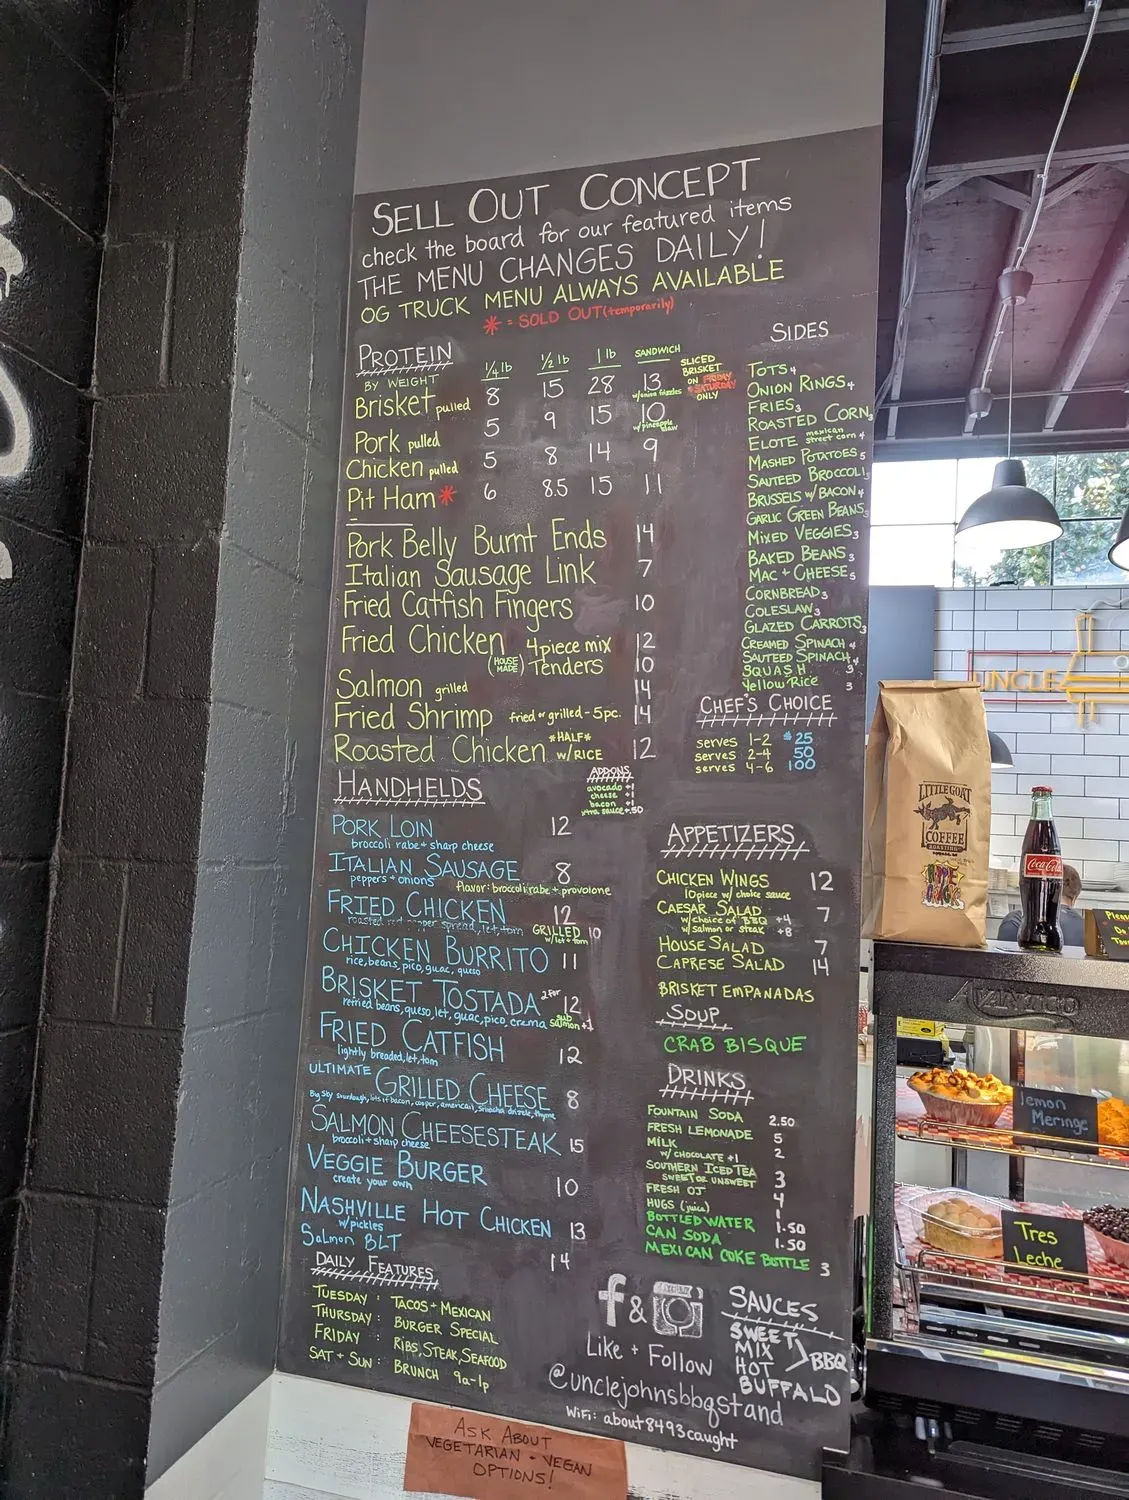 SELL OUT CONCEPT
check the board for our featured items
THE MENU CHANGES DAILY!
OG TRUCK MENU ALWAYS AVAILABLE
* = SOLD OUT (temporarily)
PROTEIN
BY WEIGHT
1/4 lb 1/2 lb 1 lb SANDWICH
SLICED
BRISKET
ON FRIDAY
SATURDAY
ONLY
Brisket pulled 8 15 28 13
w/onion frizzles
Pork pulled 5 9 15 10
w/pineapple slaw
Chicken pulled 5 8 14 9
Pit Ham * 6 8.5 15 11
Pork Belly Burnt Ends 14
Italian Sausage Link 7
Fried Catfish Fingers 10
Fried Chicken 4 piece mix 12
(HOUSE MADE) Tenders 10
Salmon grilled 14
Fried Shrimp fried or grilled - 5pc. 14
Roasted Chicken *HALF* w/RICE 12
HANDHELDS
ADDONS
avocado +1
cheese +1
bacon +1
xtra sauce +.50
PORK LOIN 12
broccoli rabe + sharp cheese
ITALIAN SAUSAGE 8
peppers + onions
flavor: broccoli rabe + provolone
FRIED CHICKEN 12
roasted red pepper spread, let, tom
GRILLED 10
w/let + tom
CHICKEN BURRITO 11
rice, beans, pico, guac, queso
BRISKET TOSTADA 2 for 12
refried beans, queso, let, guac, pico, crema
sub salmon +1
FRIED CATFISH 12
lightly breaded, let, tom
ULTIMATE GRILLED CHEESE 8
Big Sky sourdough, lots of bacon, cooper, american, sriracha drizzle, thyme
SALMON CHEESESTEAK 15
broccoli + sharp cheese
VEGGIE BURGER 10
create your own
NASHVILLE HOT CHICKEN 13
w/pickles
Salmon BLT 14
DAILY FEATURES
TUESDAY : TACOS + MEXICAN
THURSDAY : BURGER SPECIAL
FRIDAY : RIBS, STEAK, SEAFOOD
SAT + SUN : BRUNCH 9a-1p
SIDES
TOTS 4
ONION RINGS 4
FRIES 3
ROASTED CORN 3
ELOTE mexican street corn 4
MASHED POTATOES 5
SAUTEED BROCCOLI
BRUSSELS w/BACON 4
GARLIC GREEN BEANS 3
MIXED VEGGIES 3
BAKED BEANS 3
MAC + CHEESE 5
CORNBREAD 3
COLESLAW 3
GLAZED CARROTS 3
CREAMED SPINACH 4
SAUTEED SPINACH 4
SQUASH 3
Yellow Rice 3
CHEF'S CHOICE
serves 1-2 $25
serves 2-4 50
serves 4-6 100
APPETIZERS
CHICKEN WINGS 12
10 piece w/ choice sauce
CAESAR SALAD 7
w/choice of BBQ +4
w/salmon or steak +8
HOUSE SALAD 7
CAPRESE SALAD 14
BRISKET EMPANADAS
SOUP
CRAB BISQUE
DRINKS
FOUNTAIN SODA 2.50
FRESH LEMONADE 5
MILK 2
w/ CHOCOLATE +1
SOUTHERN ICED TEA 3
SWEET OR UNSWEET
FRESH OJ 4
HUGS (juice) 1
BOTTLED WATER 1.50
CAN SODA 1.50
MEXICAN COKE BOTTLE 3
f &
Like + Follow
@unclejohnsbbqstand
WiFi: about8493caught
SAUCES
SWEET
MIX
HOT
BBQ
BUFFALO
ASK ABOUT
VEGETARIAN + VEGAN
OPTIONS!
UNCLE
LITTLE GOAT
COFFEE
ROASTING
Coca-Cola
AVANTCO
lemon
Meringe
Tres
Leche